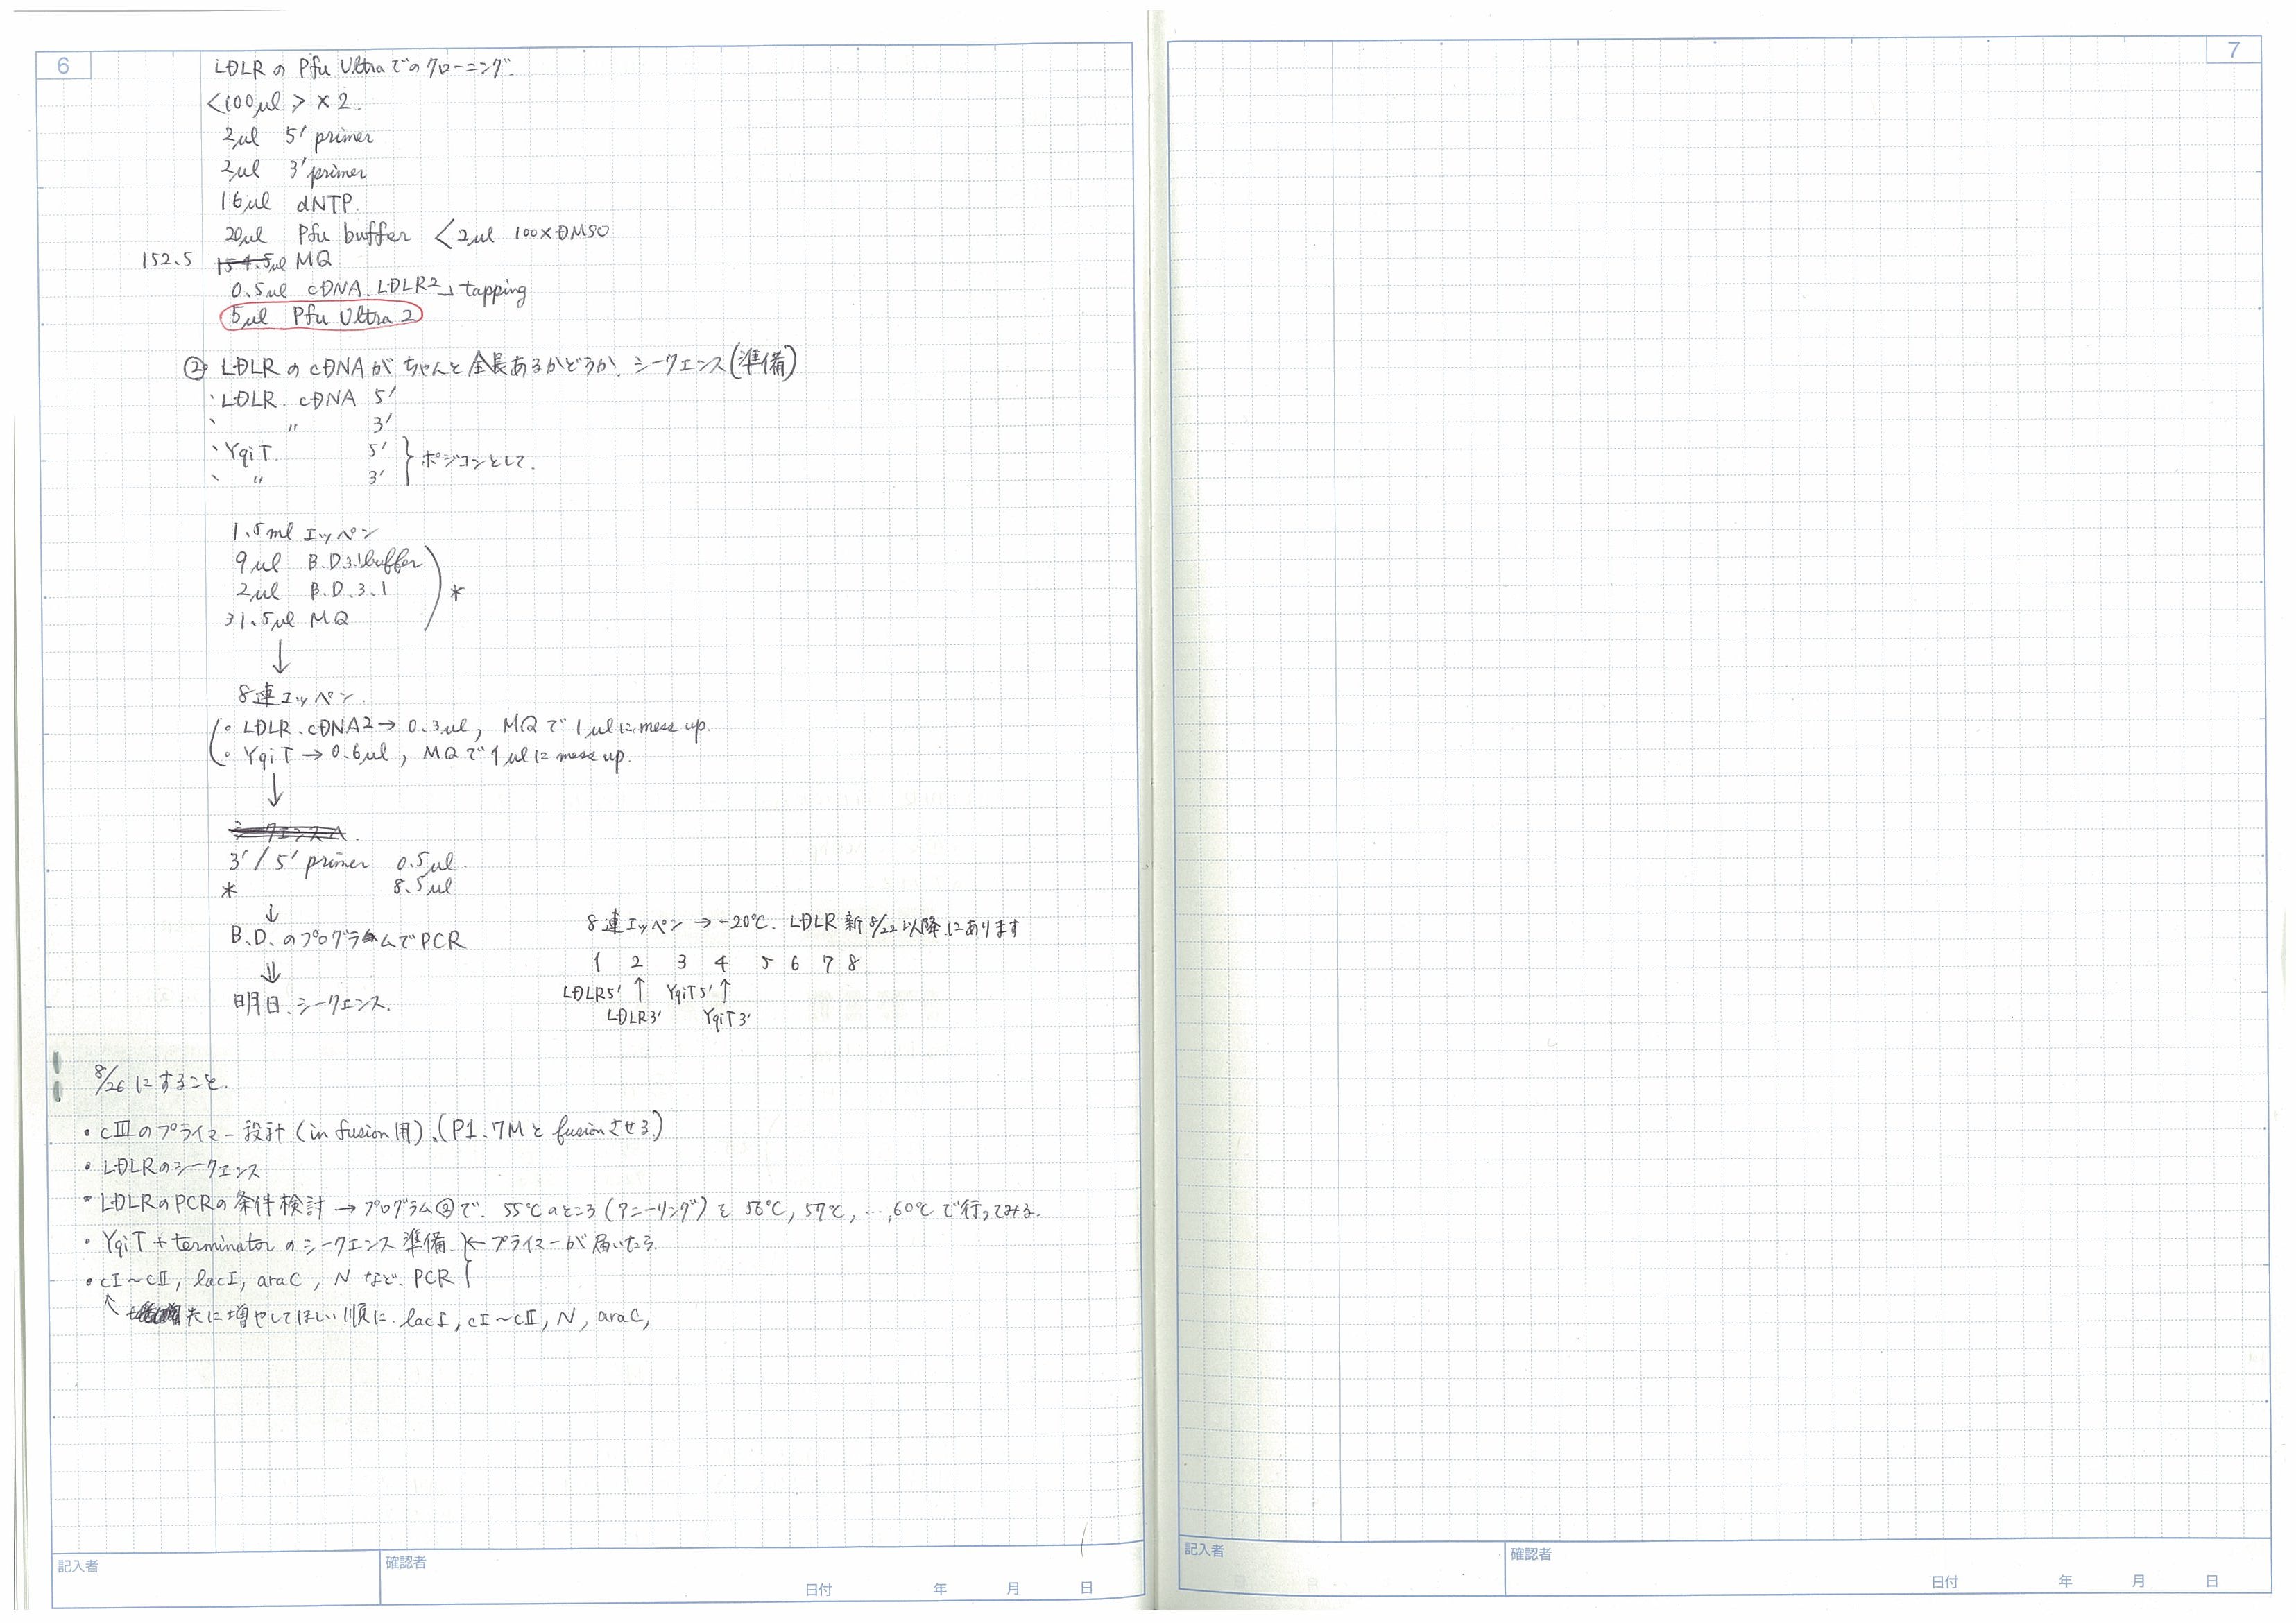 6
LDLRのPfu Ultraでのクローニング.
<100μl>×2.
2μl 5' primer
2μl 3' primer
16μl dNTP.
20μl Pfu buffer < 2μl 100×DMSO
152.5 154.5μl MQ
0.5μl cDNA. LDLR2 」tapping
5μl Pfu Ultra 2
② LDLRのcDNAがちゃんと全長あるかどうか、シークエンス(準備)
・LDLR. cDNA 5'
・ 〃 3'
・YqiT. 5'
・ 〃 3' } ポジコンとして.
1.5ml エッペン
9μl B.D.3.1 buffer
2μl B.D.3.1
31.5μl MQ ) *
↓
8連エッペン.
・LDLR.cDNA2→0.3μl, MQで1μlに mess up.
・YqiT→0.6μl, MQで1μlに mess up.
↓
3'/5' primer 0.5μl.
* 8.5μl
↓
B.D.のプログラムでPCR
⇓
明日、シークエンス.
8連エッペン→-20℃. LDLR 新8/22以降.にあります
1 2 3 4 5 6 7 8
LDLR5' ↑ YqiT5' ↑
LDLR3' YqiT3'
8/26にすること.
・cⅢのプライマー設計(in fusion用)、(P1.7Mとfusionさせる.)
・LDLRのシークエンス
・LDLRのPCRの条件検討→プログラム②で. 55℃のところ(アニーリング)を56℃, 57℃, …, 60℃で行ってみる.
・YqiT+terminatorのシークエンス準備. ←プライマーが届いたら.
・cI~cⅡ, lacI, araC, Nなど. PCR
↑ 先に増やしてほしい順に. lacI, cI~cⅡ, N, araC,
記入者
確認者
日付 年 月 日
7
記入者
確認者
日付 年 月 日